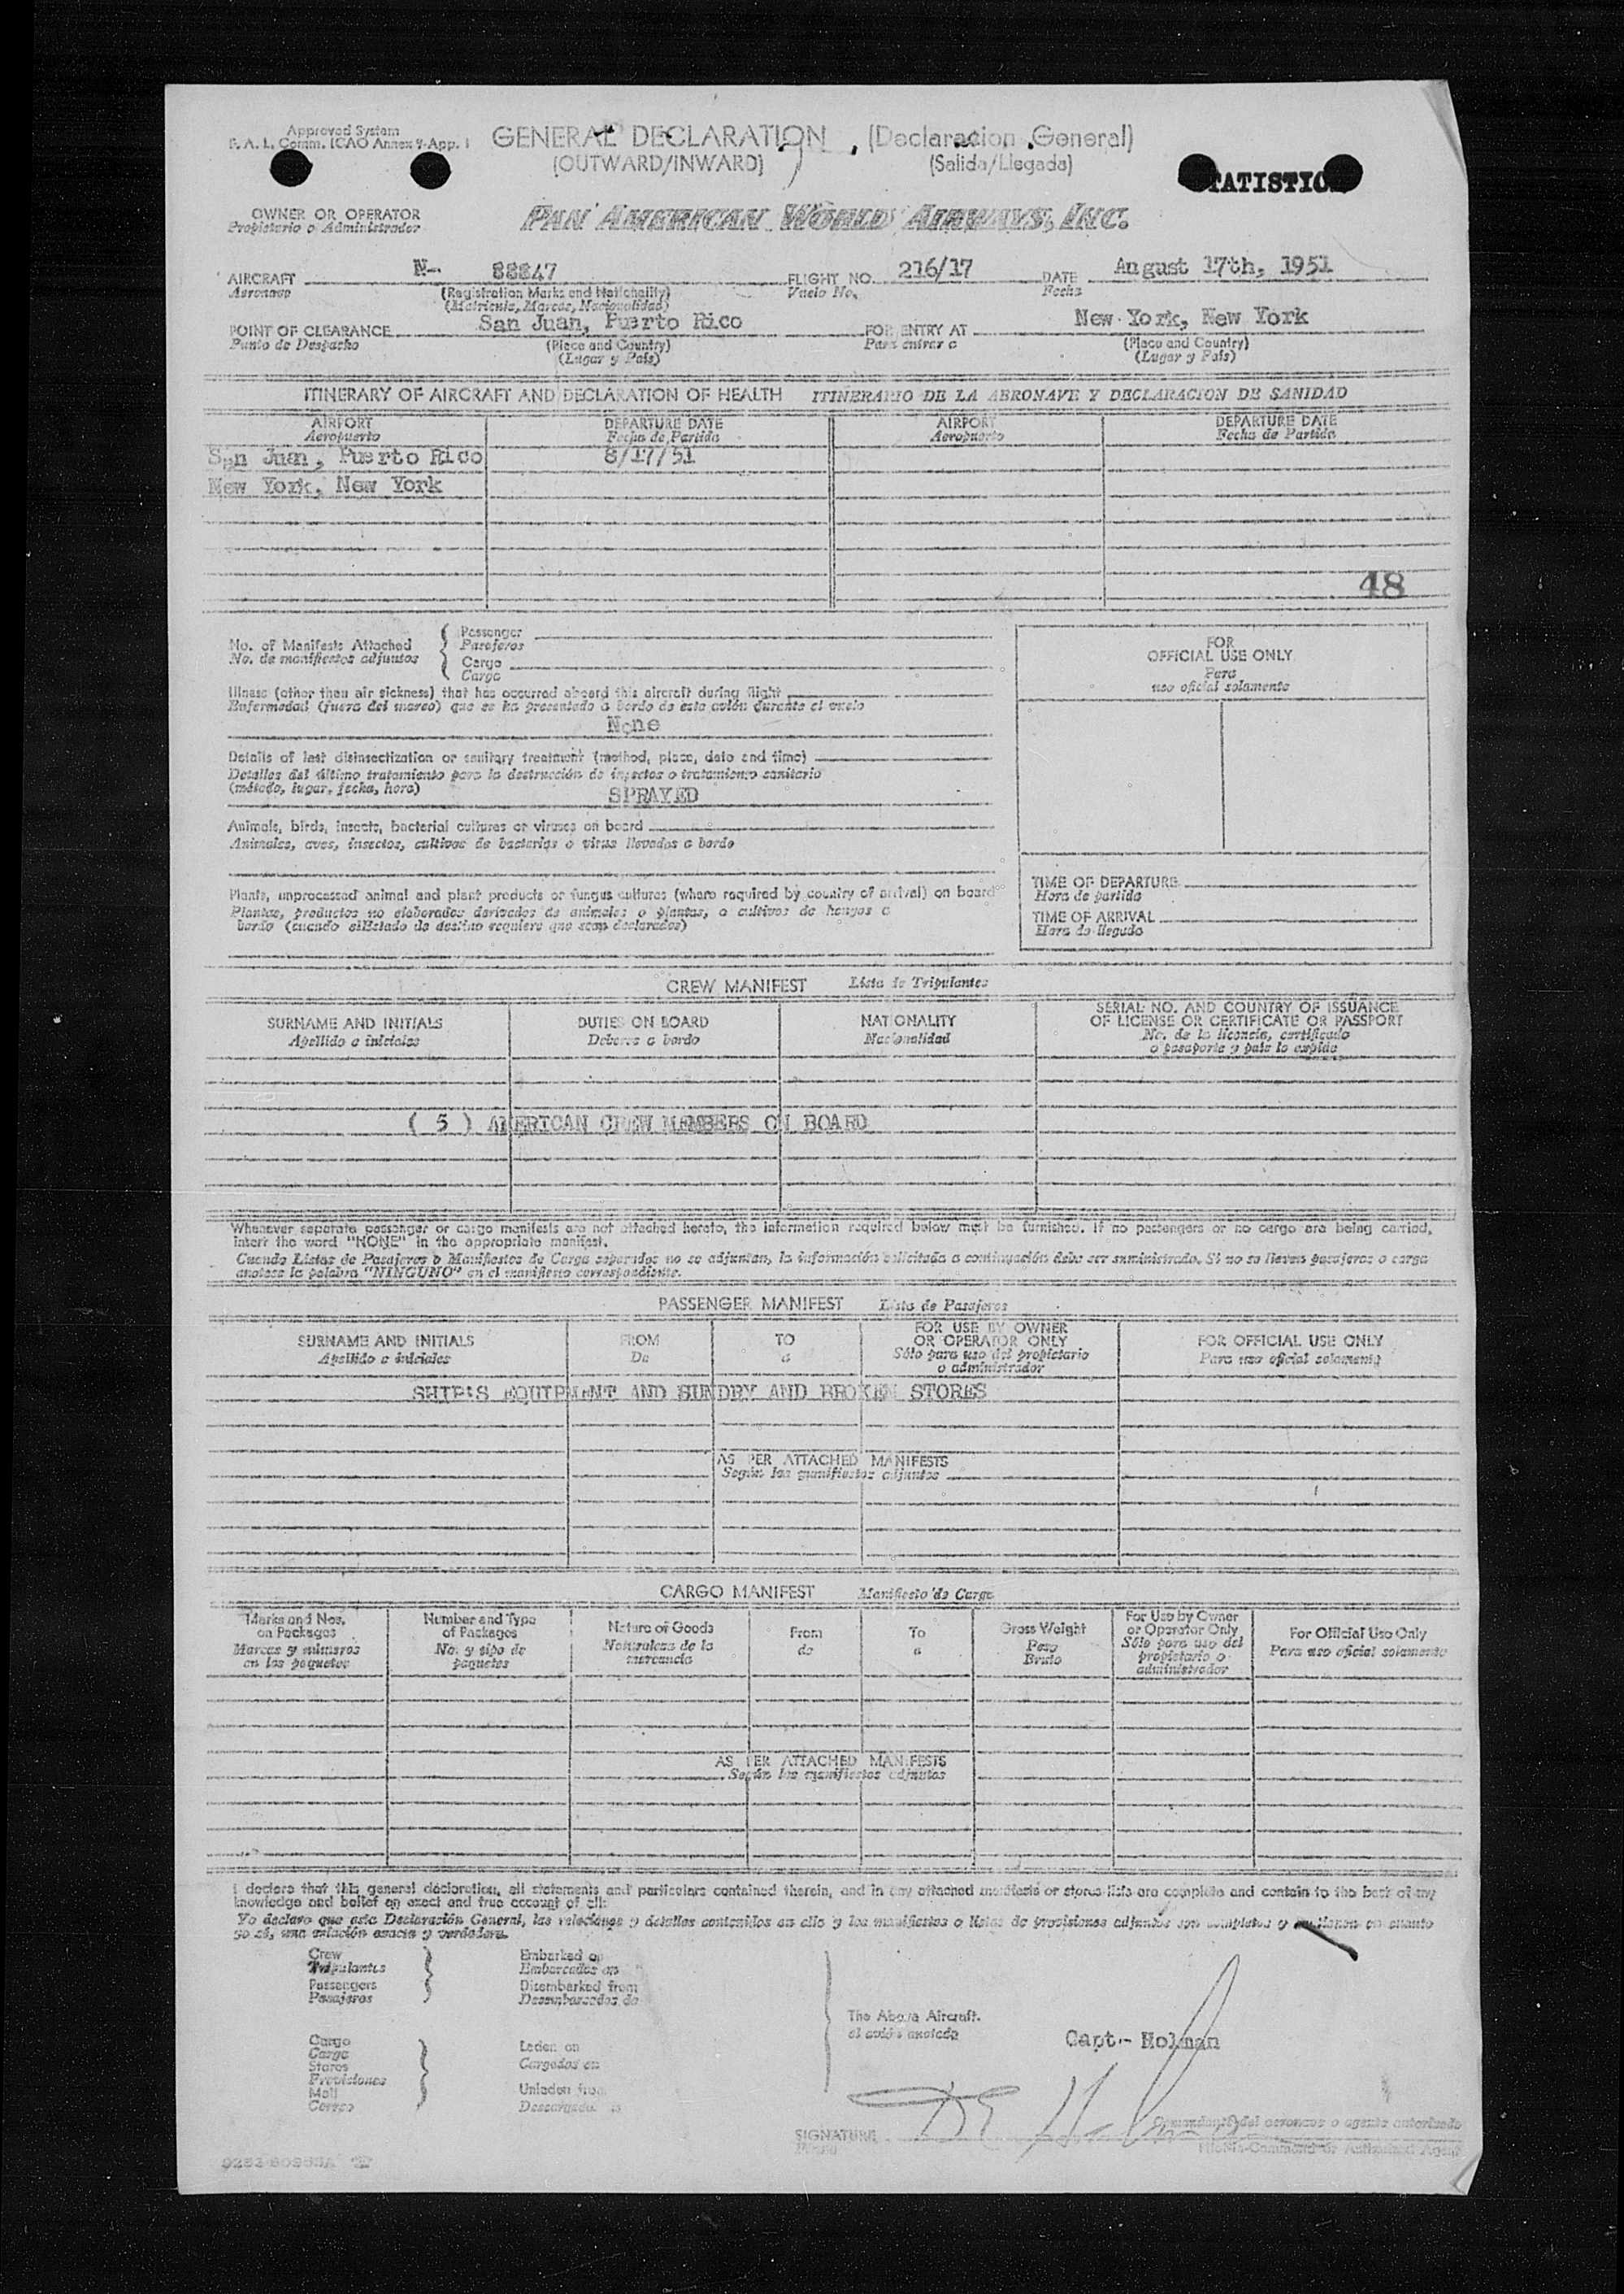 Approved System
F. A. L. Comm. ICAO Annex 9-App. 1
GENERAL DECLARATION (Declaracion General)
(OUTWARD/INWARD) (Salida/Llegada)
TATISTIC
OWNER OR OPERATOR
Propietario o Administrador
PAN AMERICAN WORLD AIRWAYS, INC.
AIRCRAFT N- 88847 FLIGHT NO. 216/17 DATE August 17th, 1951
Aeronave (Registration Marks and Nationality) Vuelo No. Fecha
(Matricula, Marcas, Nacionalidad)
POINT OF CLEARANCE San Juan, Puerto Rico FOR ENTRY AT New York, New York
Punto de Despacho (Place and Country) Para entrar a (Place and Country)
(Lugar y País) (Lugar y País)
ITINERARY OF AIRCRAFT AND DECLARATION OF HEALTH ITINERARIO DE LA AERONAVE Y DECLARACION DE SANIDAD
AIRPORT DEPARTURE DATE AIRPORT DEPARTURE DATE
Aeropuerto Fecha de Partida Aeropuerto Fecha de Partida
San Juan, Puerto Rico 8/17/51
New York, New York
48
No. of Manifests Attached
No. de manifiestos adjuntos
Passenger
Pasajeros
Cargo
Carga
FOR
OFFICIAL USE ONLY
Para
uso oficial solamente
Illness (other than air sickness) that has occurred aboard this aircraft during flight
Enfermedad (fuera del mareo) que se ha presentado a bordo de este avión durante el vuelo
None
Details of last disinsectization or sanitary treatment (method, place, date and time)
Detalles del último tratamiento para la destrucción de insectos o tratamiento sanitario
(método, lugar, fecha, hora)
SPRAYED
Animals, birds, insects, bacterial cultures or viruses on board
Animales, aves, insectos, cultivos de bacterias o virus llevados a bordo
Plants, unprocessed animal and plant products or fungus cultures (where required by country of arrival) on board
Plantas, productos no elaborados derivados de animales o plantas, o cultivos de hongos a
bordo (cuando el Estado de destino requiere que sean declarados)
TIME OF DEPARTURE
Hora de partida
TIME OF ARRIVAL
Hora de llegada
CREW MANIFEST Lista de Tripulantes
SURNAME AND INITIALS DUTIES ON BOARD NATIONALITY SERIAL NO. AND COUNTRY OF ISSUANCE
OF LICENSE OR CERTIFICATE OR PASSPORT
Apellido e iniciales Deberes a bordo Nacionalidad No. de la licencia, certificado
o pasaporte y país lo expide
( 5 ) AMERICAN CREW MEMBERS ON BOARD
Whenever separate passenger or cargo manifests are not attached hereto, the information required below must be furnished. If no passengers or no cargo are being carried,
insert the word "NONE" in the appropriate manifest.
Cuando Listas de Pasajeros o Manifiestos de Carga separados no se adjuntan, la información solicitada a continuación debe ser suministrada. Si no se llevan pasajeros o carga
anotese la palabra "NINGUNO" en el manifiesto correspondiente.
PASSENGER MANIFEST Lista de Pasajeros
SURNAME AND INITIALS FROM TO FOR USE BY OWNER
OR OPERATOR ONLY FOR OFFICIAL USE ONLY
Apellido e iniciales De a Sólo para uso del propietario
o administrador Para uso oficial solamente
SHIP'S EQUIPMENT AND SUNDRY AND BROKEN STORES
AS PER ATTACHED MANIFESTS
Según los manifiestos adjuntos
CARGO MANIFEST Manifiesto de Carga
Marks and Nos.
on Packages
Marcas y números
en los paquetes
Number and Type
of Packages
No. y tipo de
paquetes
Nature of Goods
Naturaleza de la
mercancía
From
de
To
a
Gross Weight
Peso
Bruto
For Use by Owner
or Operator Only
Sólo para uso del
propietario o
administrador
For Official Use Only
Para uso oficial solamente
AS PER ATTACHED MANIFESTS
Según los manifiestos adjuntos
I declare that this general declaration, all statements and particulars contained therein, and in any attached manifests or stores lists are complete and contain to the best of my
knowledge and belief an exact and true account of all:
Yo declaro que esta Declaración General, las relaciones y detalles contenidos en ella y los manifiestos o listas de provisiones adjuntos son completos y contienen en cuanto
yo sé, una relación exacta y verdadera.
Crew
Tripulantes
Passengers
Pasajeros
Embarked on
Embarcados en
Disembarked from
Desembarcados de
Cargo
Carga
Stores
Provisiones
Mail
Correo
Laden on
Cargados en
Unladen from
Descargado
The Above Aircraft.
el avión anotado
Capt- Holman
Comandante del aeronave o agente autorizado
SIGNATURE
Pilot-in-Command or Authorized Agent